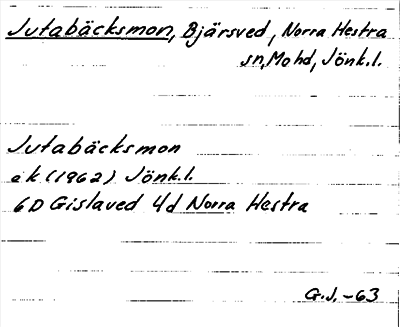 Jutabäcksmon, Bjärsved, Norra Hestra
sn, Mo hd, Jönk.l.
Jutabäcksmon
ek (1962) Jönk.l.
6D Gislaved 4d Norra Hestra
G.J. -63